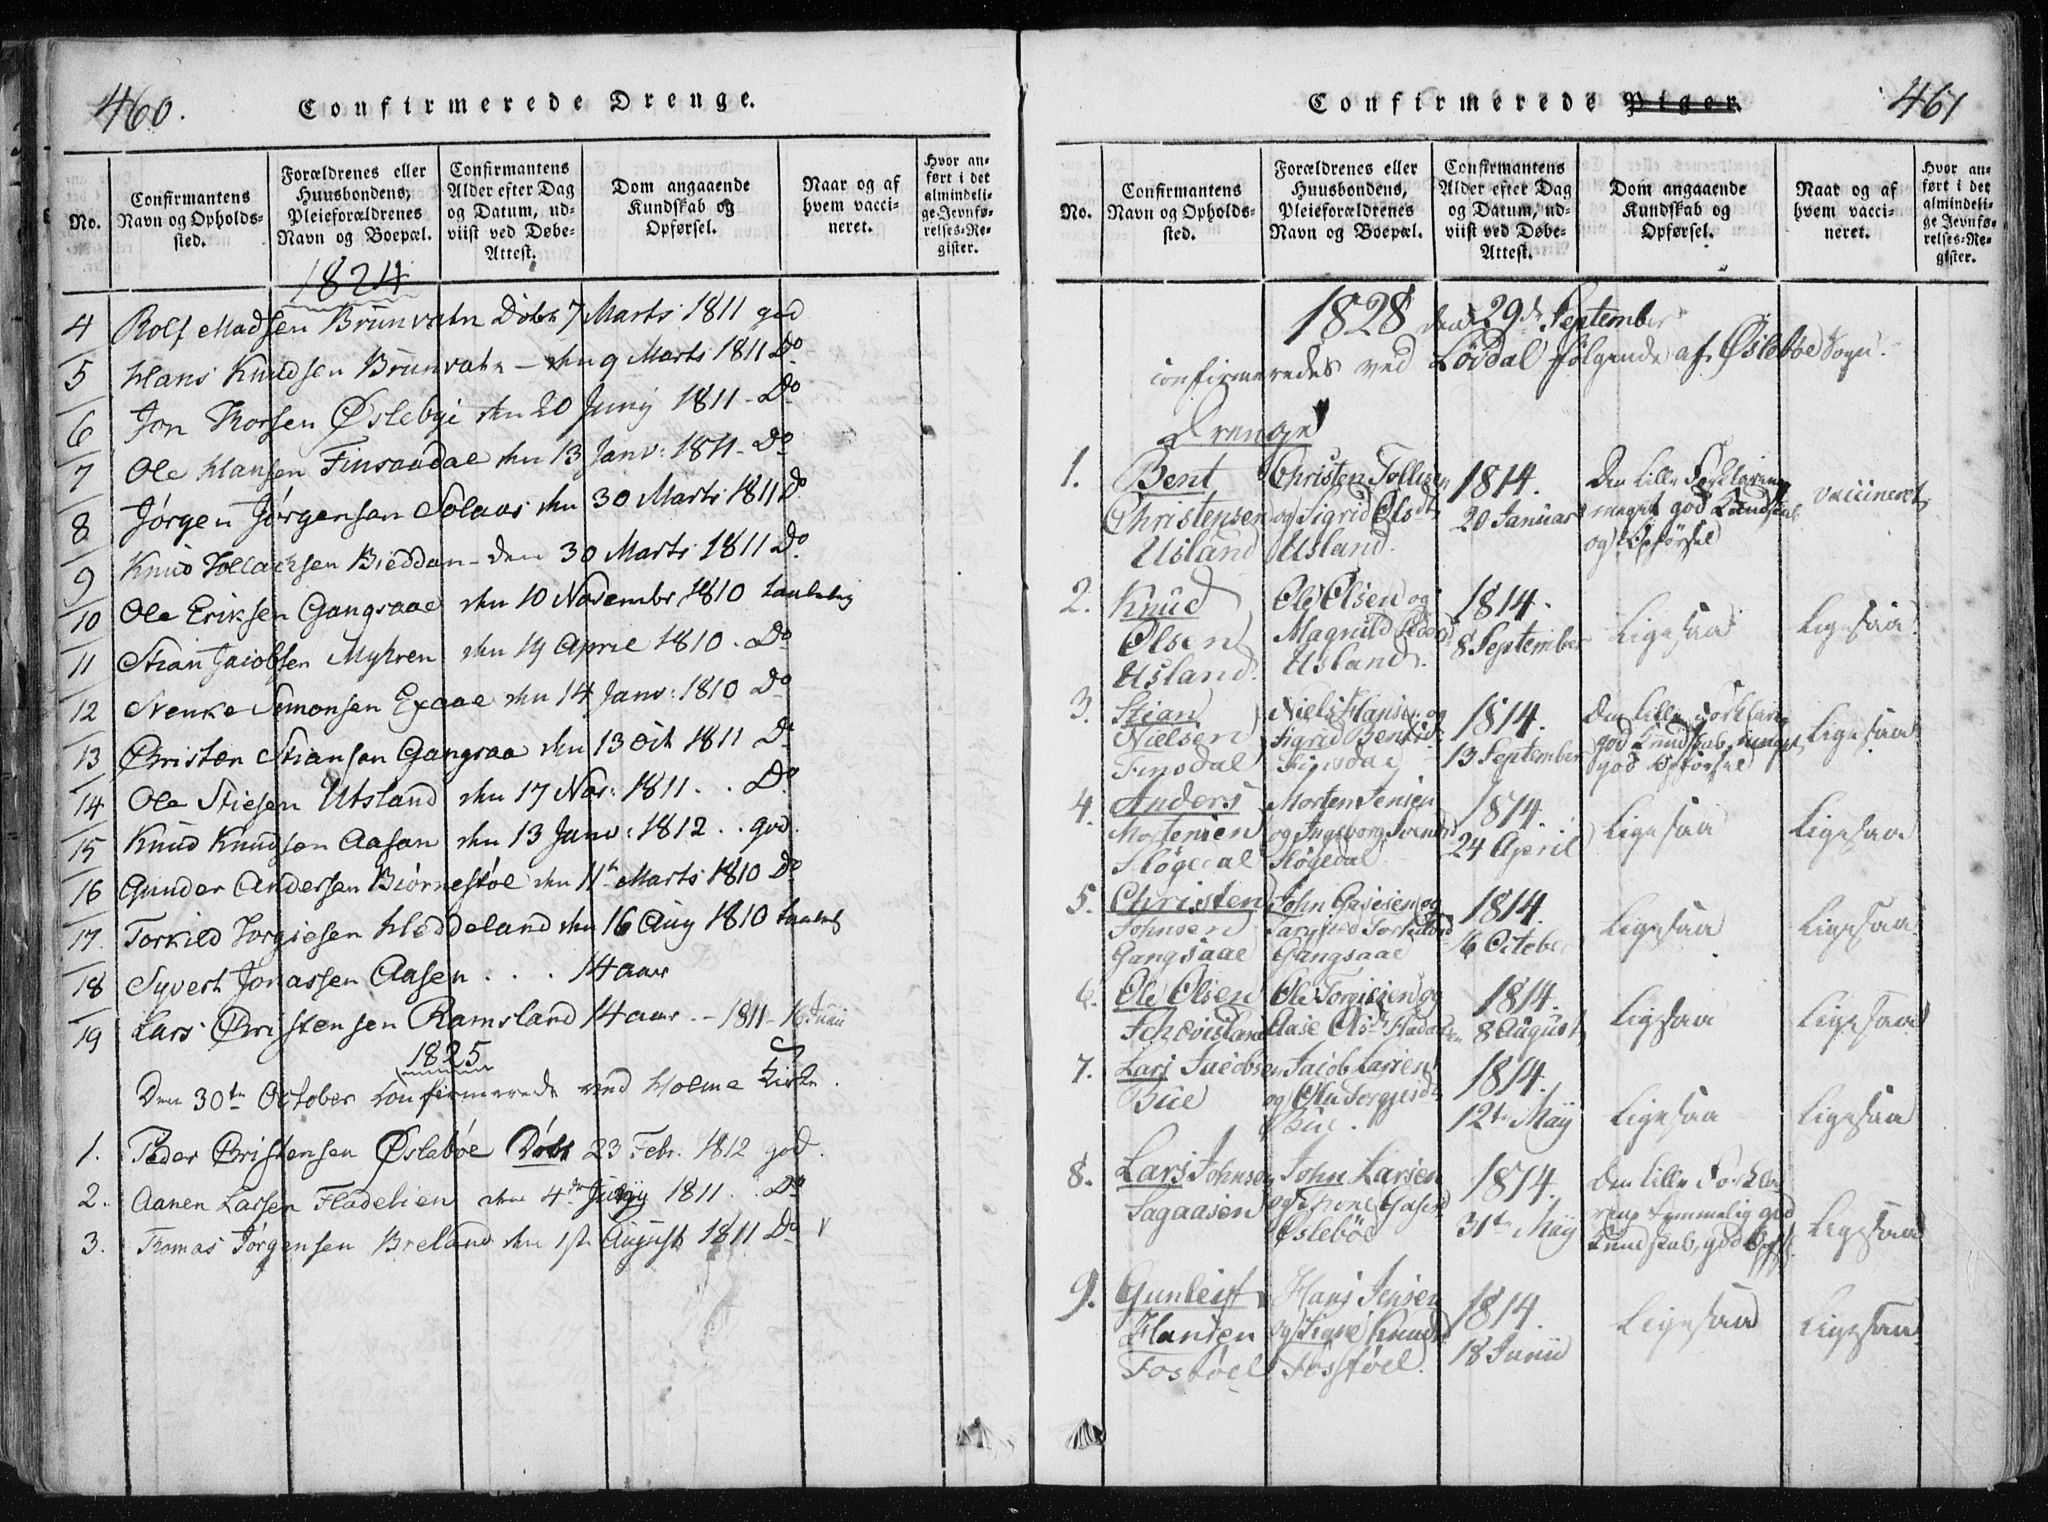 460.
Confirmerede Drenge.
No.
Confirmantens Navn og Opholds-
sted.
Forældrenes eller
Huusbondens,
Pleieforældrenes
Navn og Boepæl.
Confirmantens
Alder efter Dag
og Datum, ud-
viist ved Døbe-
Attest.
Dom angaaende
Kundskab og
Opførsel.
Naar og af
hvem vacci-
neret.
Hvor an-
ført i det
almindeli-
ge Jevnfø-
relses-Re-
gister.
1824
4 Rolf Madsen Brunvatn Døbt 7 Marts 1811 god
5 Hans Knudsen Brunvatn - den 9 Marts 1811 Do
6 Jon Thorsen Øslebye den 20 Junij 1811 - Do
7 Ole Hansen Finsaadal den 13 Janv: 1811 - Do
8 Jørgen Jørgensen Solaas den 30 Marts 1811 Do
9 Knud Tollachsen - den 30 Marts 1811 Do
10 Ole Eriksen Gangsaae den 10 Novembr 1810 taalelig
11 Stian Jacobsen Myhren den 19 April 1810 . Do
12 Simonsen den 14 Janv: 1810 Do
13 Christen Stiansen Gangsaa den 13 Oct 1811 Do
14 Ole Stiesen Utsland den 17 Nov: 1811 . . Do
15 Knud Knudsen Aasan den 13 Janv: 1812 . . god.
16 Gunder Andersen Biørnestøl den 11te Marts 1810 Do
17. Torkild Torgiesen Heddeland den 16 Aug 1810
18 Syvert Jonassen Aasen . . . 14 aar
19 Lars Christensen Ramsland 14 aar - 1811 - 16 Junii
1825
Den 30te October Confirmerede ved Holme Kirke .
1. Peder Christensen Øslebøe Døbt 23 Febr. 1812 god .
2. Aanen Larsen Fladelien den 4de July 1811 . Do
3. Thomas Jørgensen Breland den 1st August 1811 Do
461
Confirmerede Piger.
No.
Confirmantens
Navn og Opholds-
sted.
Forældrenes eller
Huusbondens,
Pleieforældrenes
Navn og Boepæl.
Confirmantens
Alder efter Dag
og Datum, ud-
viist ved Døbe-
Attest.
Dom angaaende
Kundskab og
Opførsel.
Naar og af
hvem vacci-
neret.
Hvor an-
ført i det
almindeli-
ge Jevnfø-
relses-Re-
gister.
1828 den 29de September
confirmeredes ved Løvdal følgende af Øslebøe Sogn.
Drenge
1. Bent
Christensen
Usland
Christen Tollissen
og Sigrid Olsdtr
Usland.
1814.
20 Januar
Den lille Forklaring
meget god Kundskab
og Opførsel
vaccineret
2. Knud
Olsen
Usland.
Ole Olsen og
Magnild
Usland.
1814.
8 September
Ligesaa
Ligesaa
3. Stian
Nielsen
Finsdal
Niels Hansen og
Sigrid Bentsd.
Finsdal
1814.
13 September
Den lille Forklaring
god Kundskab, meget
god Opførsel
Ligesaa
4. Anders
Mortensen
Sløgedal
Morten Jensen
og Ingeborg
Sløgedal
1814.
24 April
Ligesaa
Ligesaa
5. Christen
Johnsen
Gangsaae
John og
Gangsaae
1814.
16 October
Ligesaa
Ligesaa
6. Ole Olsen
Ole Torgiesen og
Aase
1814.
8 August
Ligesaa
Ligesaa
7. Lars Jacobsen
Bue
Jacob Larsen
og Torgiesd.
Bue.
1814.
12te May
Ligesaa
Ligesaa
8. Lars Johnsen
Sagaasen
John Larsen
og
Øslebøe
1814.
31te May
Den lille Forkla-
ring temmelig god
Kundskab, god Opf.
Ligesaa
9. Gunleif
Hansen
Fostøel
Hans Jensen
og Knuds.
Fosstøel.
1814.
18 Junii
Ligesaa
Ligesaa